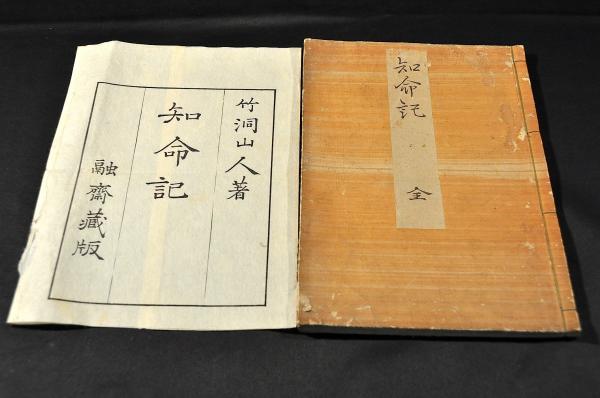 竹洞山人著
知命記
融齋藏版
知命記
全